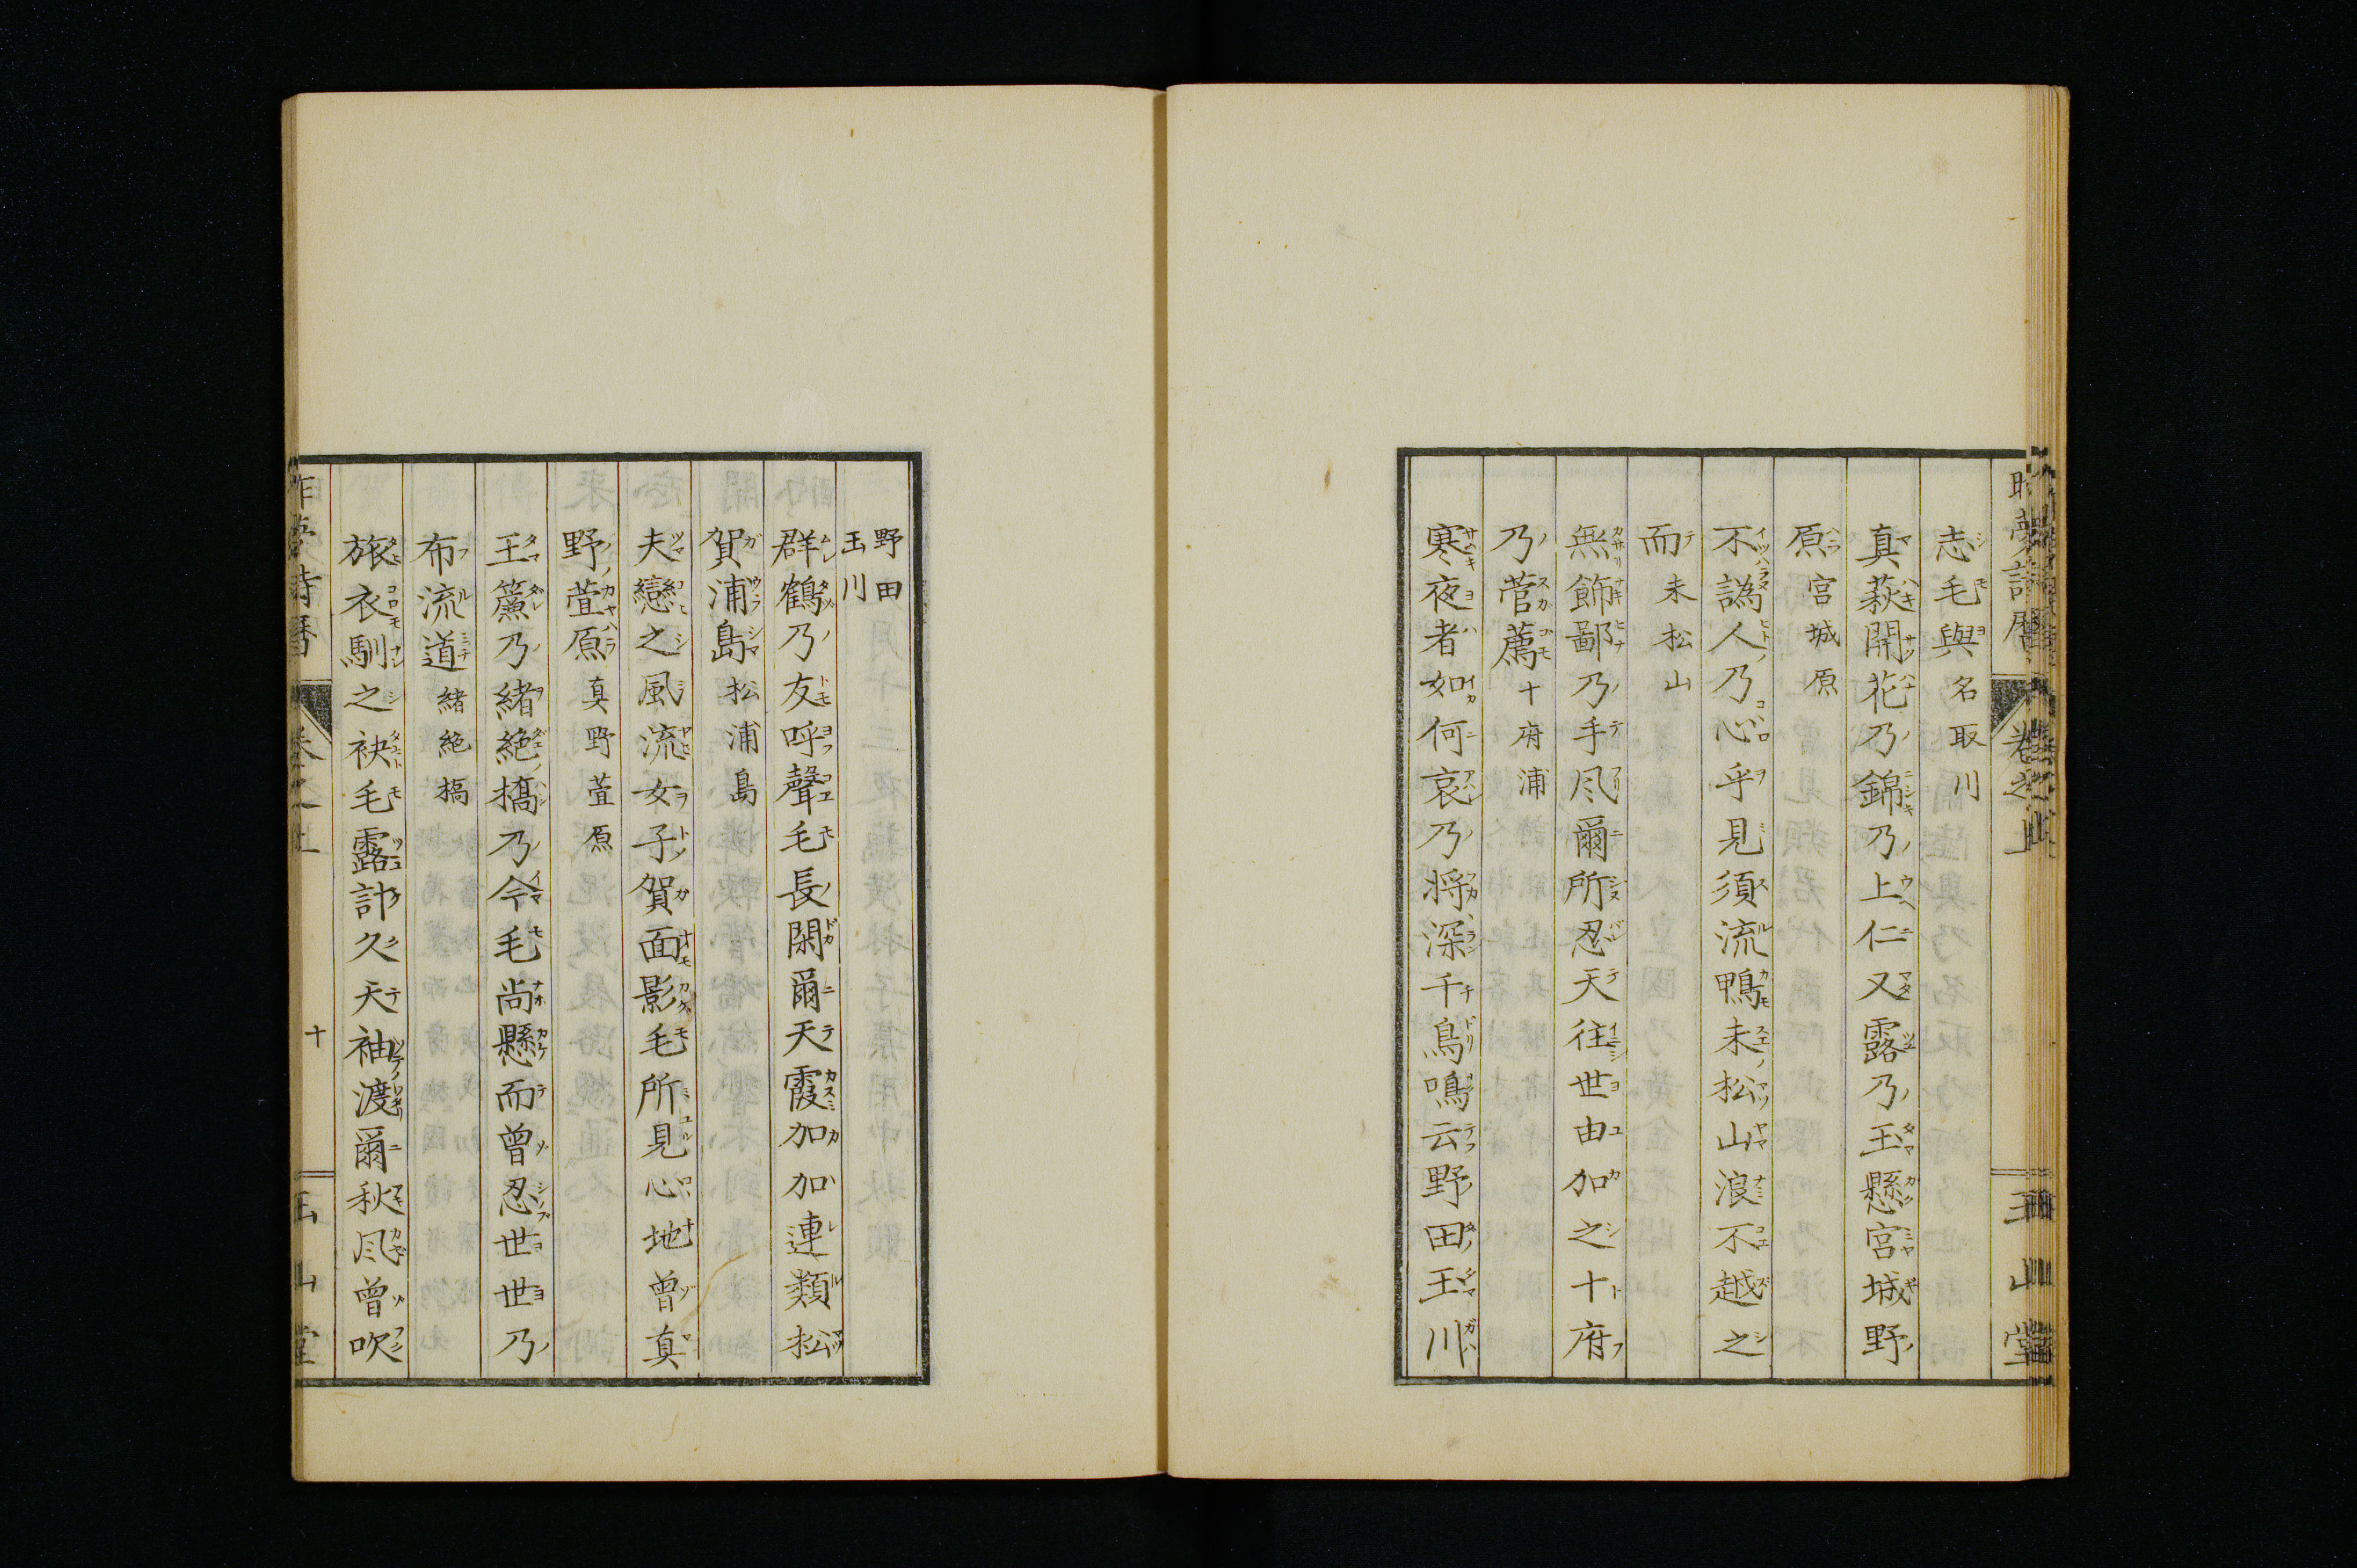 昨夢詩曆 卷之上 玉山堂
志毛與 名取川
真萩開花乃錦乃上仁又露乃玉懸宮城野
原 宮城原
不譌人乃心乎見須流鴨末松山浪不越之
而 末松山
無飾鄙乃手風爾所忍天往世由加之十府
乃菅薦 十府浦
寒夜者如何哀乃将深千鳥鳴云野田玉川
野田
玉川
群鶴乃友呼聲毛長閑爾天霞加加連類松
賀浦島 松浦島
夫戀之風流女子賀面影毛所見心地曾真
野萱原 真野萱原
玉簾乃緒絶橋乃今毛尚懸而曾忍世世乃
布流道 緒絶橋
旅衣馴之袂毛露許久天袖渡爾秋風曾吹
昨夢詩曆 卷之上 十 玉山堂